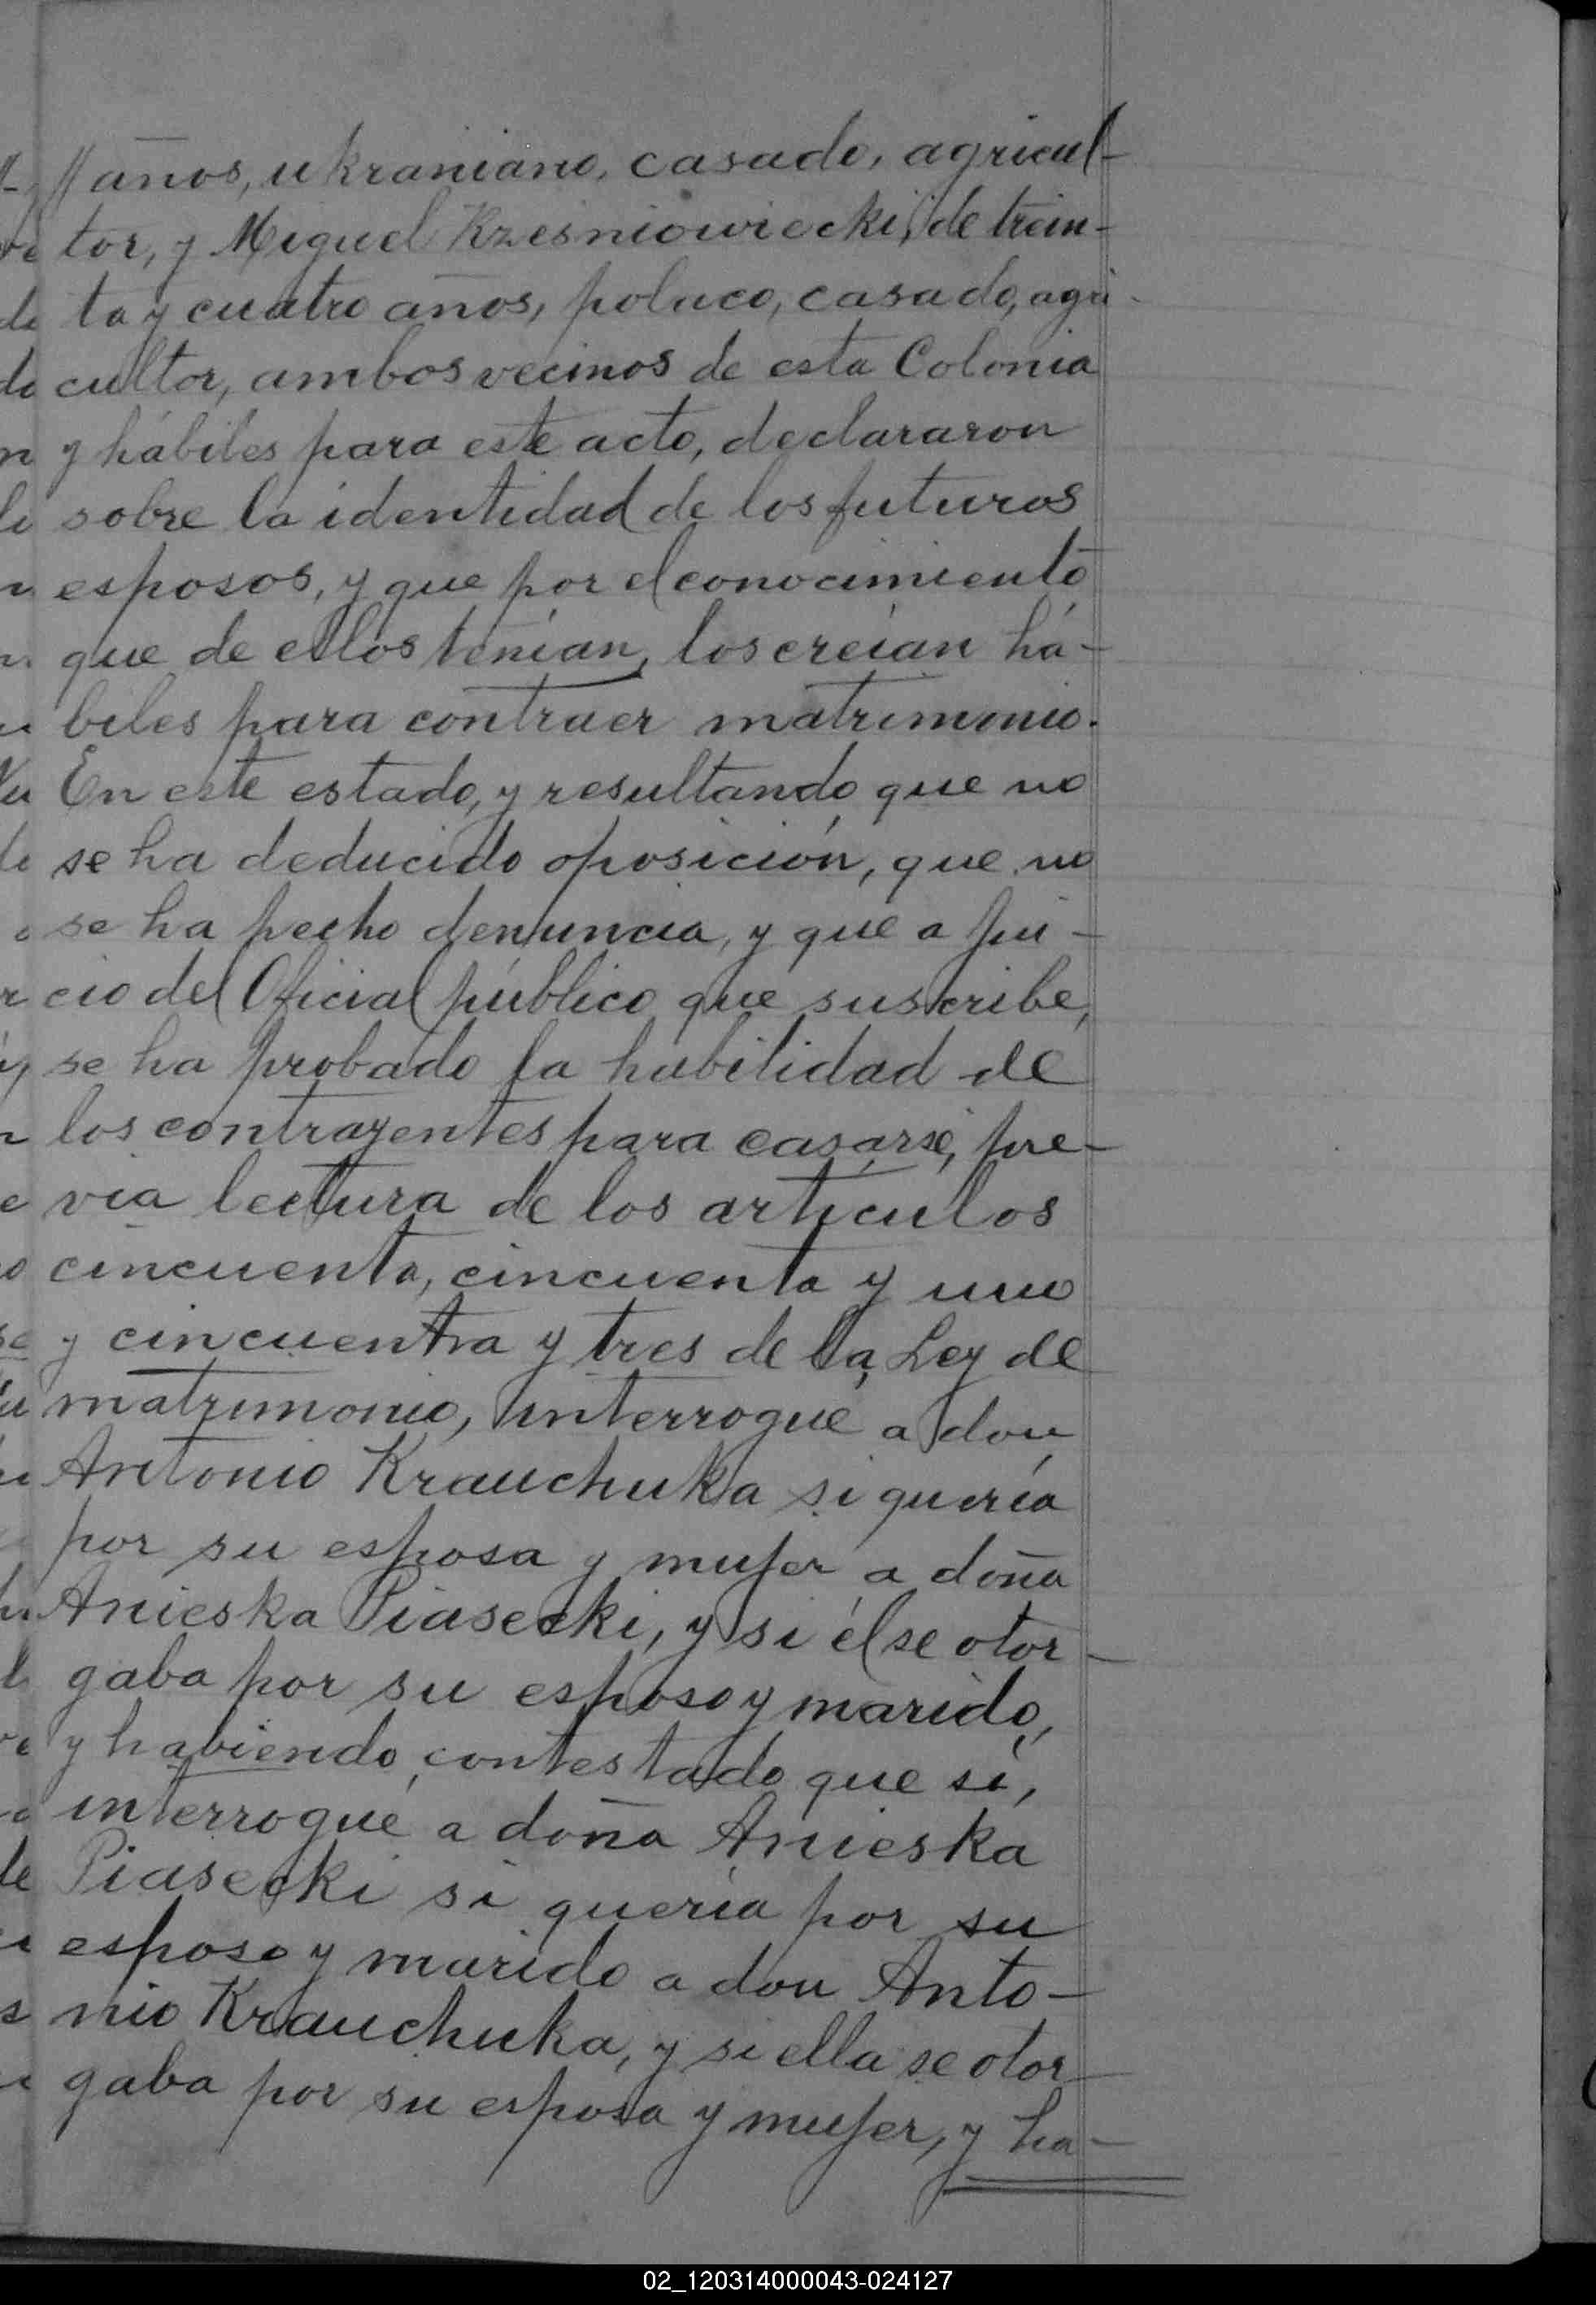 // años, ukraniano, casado, agricul-
tor, y Miguel Krzesniowiecki, de trein-
ta y cuatro años, polaco, casado, agri-
cultor, ambos vecinos de esta Colonia
y hábiles para este acto, declararon
sobre la identidad de los futuros
esposos, y que por el conocimiento
que de ellos tenían, los creían há-
biles para contraer matrimonio.
En este estado, y resultando que no
se ha deducido oposición, que no
se ha hecho denuncia, y que a jui-
cio del Oficial público que suscribe,
se ha probado la habilidad de
los contrayentes para casarse, pre-
via lectura de los artículos
cincuenta, cincuenta y uno
y cincuentra y tres de la Ley de
matrimonio, interrogué a don
Antonio Krauchuka si quería
por su esposa y mujer a doña
Anieska Piasecki, y si él se otor-
gaba por su esposo y marido,
y habiendo contestado que sí,
interrogué a doña Anieska
Piasecki si quería por su
esposo y marido a don Anto-
nio Krauchuka, y si ella se otor-
gaba por su esposa y mujer, y ha-
02_120314000043-024127